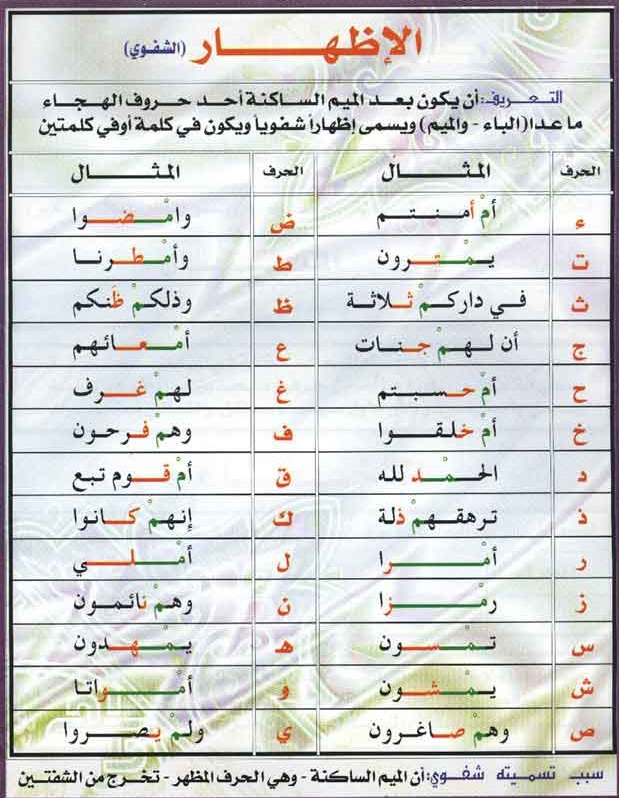 الإظهـــار (الشفوي)
التعـريف: أن يكون بعد الميم الساكنة أحد حروف الهجاء
ما عدا (الباء - والميم) ويسمى إظهاراً شفوياً ويكون في كلمة أوفي كلمتين
الحرف المثـــال الحرف المثـــال
ء أمْ أمنتـم ض وامْضـوا
ت يـمْتـرون ط وأمْطـرنـا
ث فـي داركـمْ ثـلاثـة ظ وذلكـمْ ظَنكم
ج أن لـهـمْ جـنـات ع أمْعـائهـم
ح أمْ حـسـبـتم غ لهـمْ غـرف
خ أمْ خلـقـوا ف وهـمْ فـرحون
د الحـمْـد لله ق أمْ قـوم تبع
ذ ترهقـهـمْ ذلة ك إنهـمْ كـانوا
ر أمْـرا ل أمْـلـي
ز رمْـزا ن وهـمْ نائمـون
س تـمْسـون هـ يـمْهـدون
ش يـمْشـون و أمْـواتا
ص وهـمْ صـاغرون ي ولـمْ يصـروا
سبب تسميته شفـوي: أن الميم الساكنة - وهي الحرف المظهر - تخرج من الشفتين